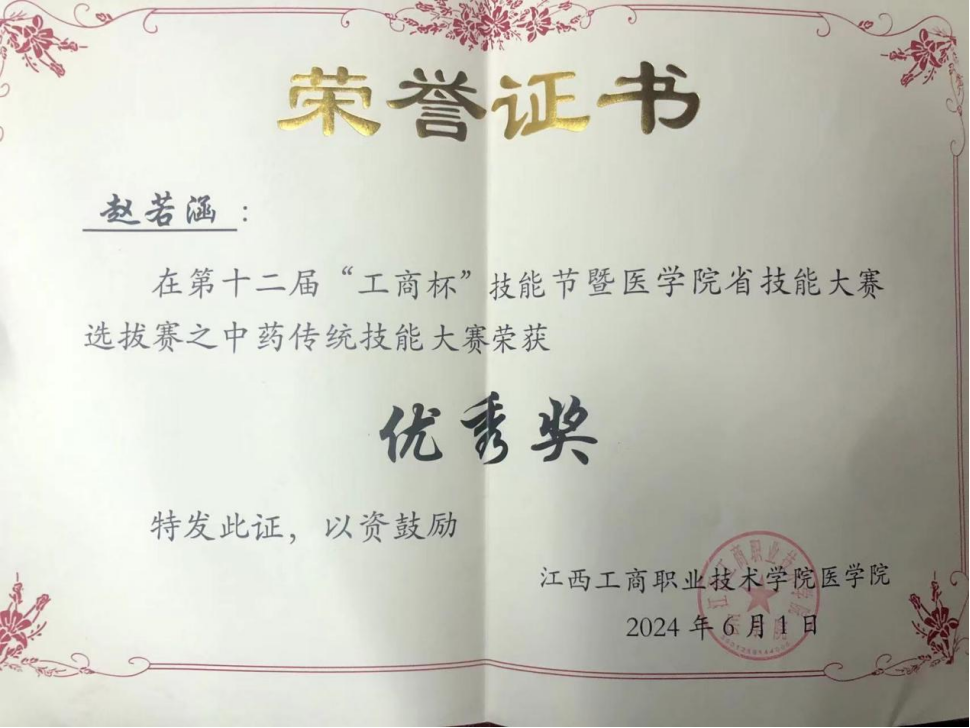 荣誉证书
赵若涵：
在第十二届“工商杯”技能节暨医学院省技能大赛
选拔赛之中药传统技能大赛荣获
优秀奖
特发此证，以资鼓励
江西工商职业技术学院医学院
2024年6月1日